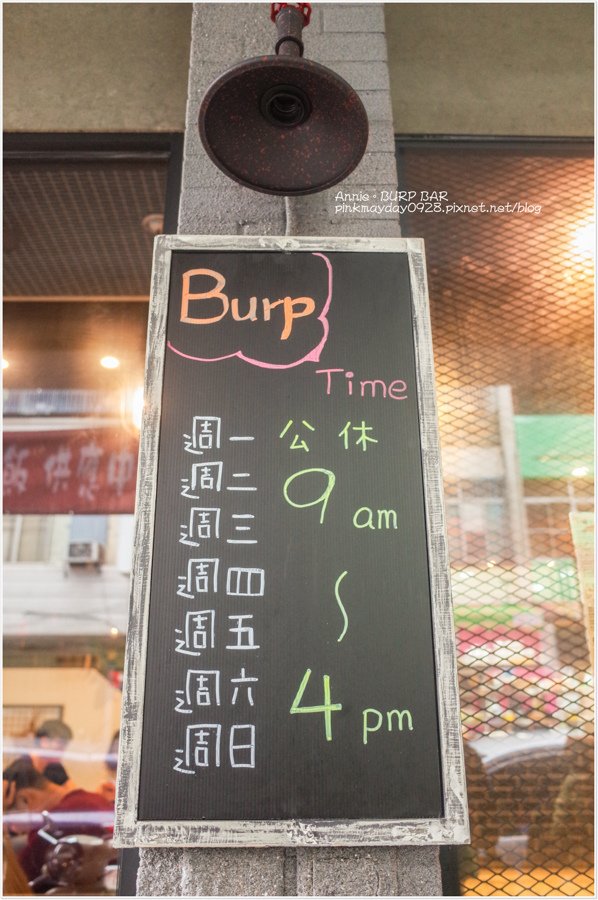 Annie。BURP BAR
pinkmayday0928.pixnet.net/blog
Burp
Time
週一 公休
週二 9 am
週三
週四
週五 ~
週六 4 pm
週日
供應中